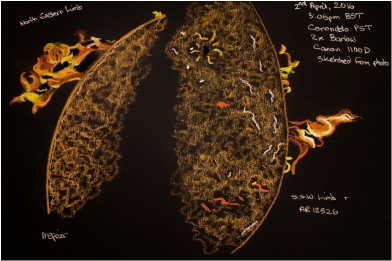 North Eastern Limb
2nd April, 2016
3:05pm BST
Coronado PST
2x Barlow
Canon 1100D
Sketched from photo
S.S.W. Limb +
AR12526